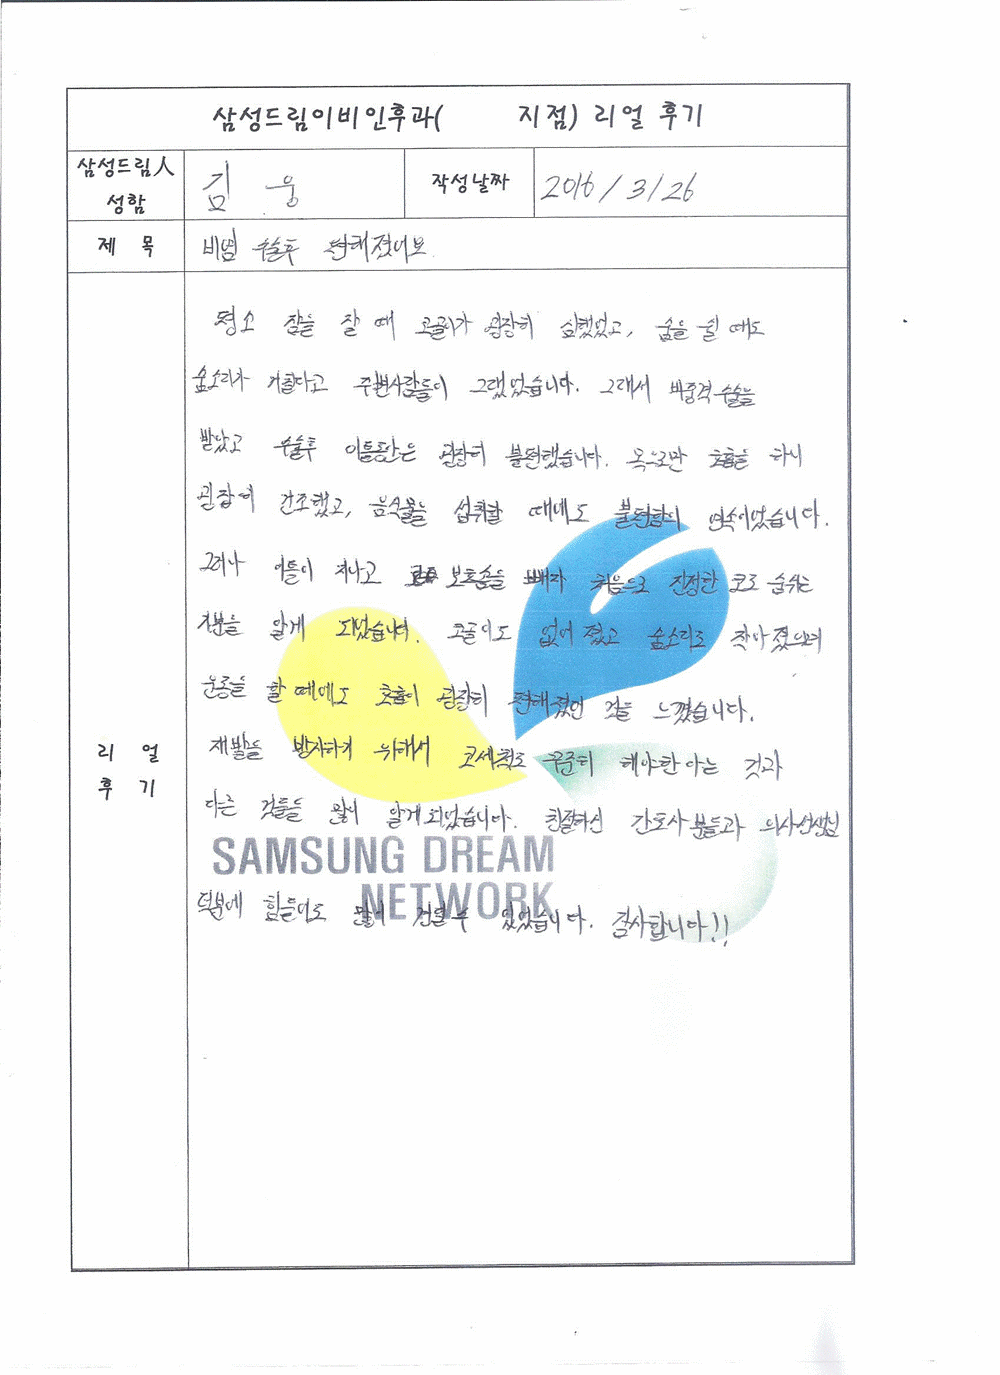 삼성드림이비인후과(     지점) 리얼 후기
삼성드림人 성함
김 웅
작성날짜
2016/3/26
제 목
비염 수술후 편해졌어요
리 얼 후 기
평소 잠을 잘 때 코골이가 굉장히 심했었고, 숨을 쉴 때도
숨소리가 거칠다고 주변사람들이 그랬었습니다. 그래서 비중격수술을
받았고 수술후 이틀동안은 굉장히 불편했습니다. 목으로만 호흡을 하니
굉장히 건조했고, 음식물을 섭취할 때에도 불편함의 연속이었습니다.
그러나 이틀이 지나고 보호솜을 빼자 처음으로 진정한 코로 숨쉬는
기분을 알게 되었습니다. 코골이도 없어졌고 숨소리도 작아졌으며
운동을 할 때에도 호흡이 굉장히 편해졌던 것을 느꼈습니다.
재발을 방지하기 위해서 코세척도 꾸준히 해야한다는 것과
다른 것들을 많이 알게되었습니다. 친절하신 간호사분들과 의사선생님
덕분에 힘들어도 많이 견딜수 있었습니다. 감사합니다!!
SAMSUNG DREAM
NETWORK